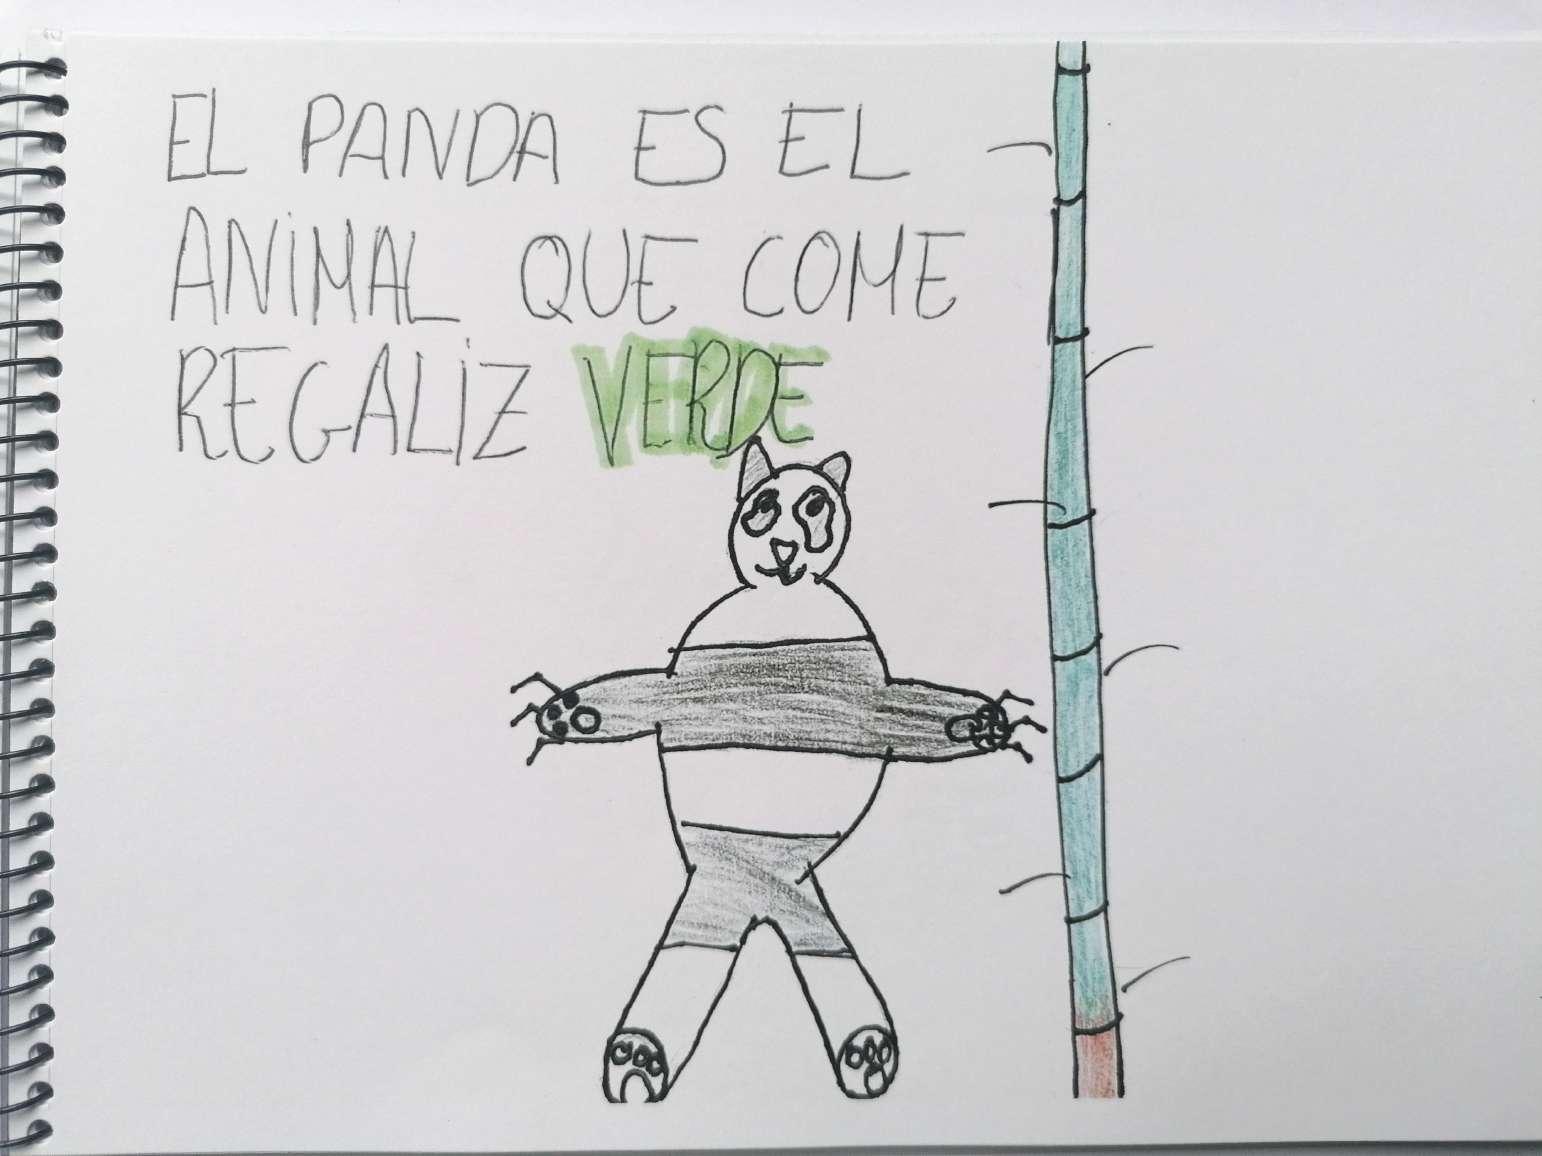 EL PANDA ES EL
ANIMAL QUE COME
REGALIZ VERDE